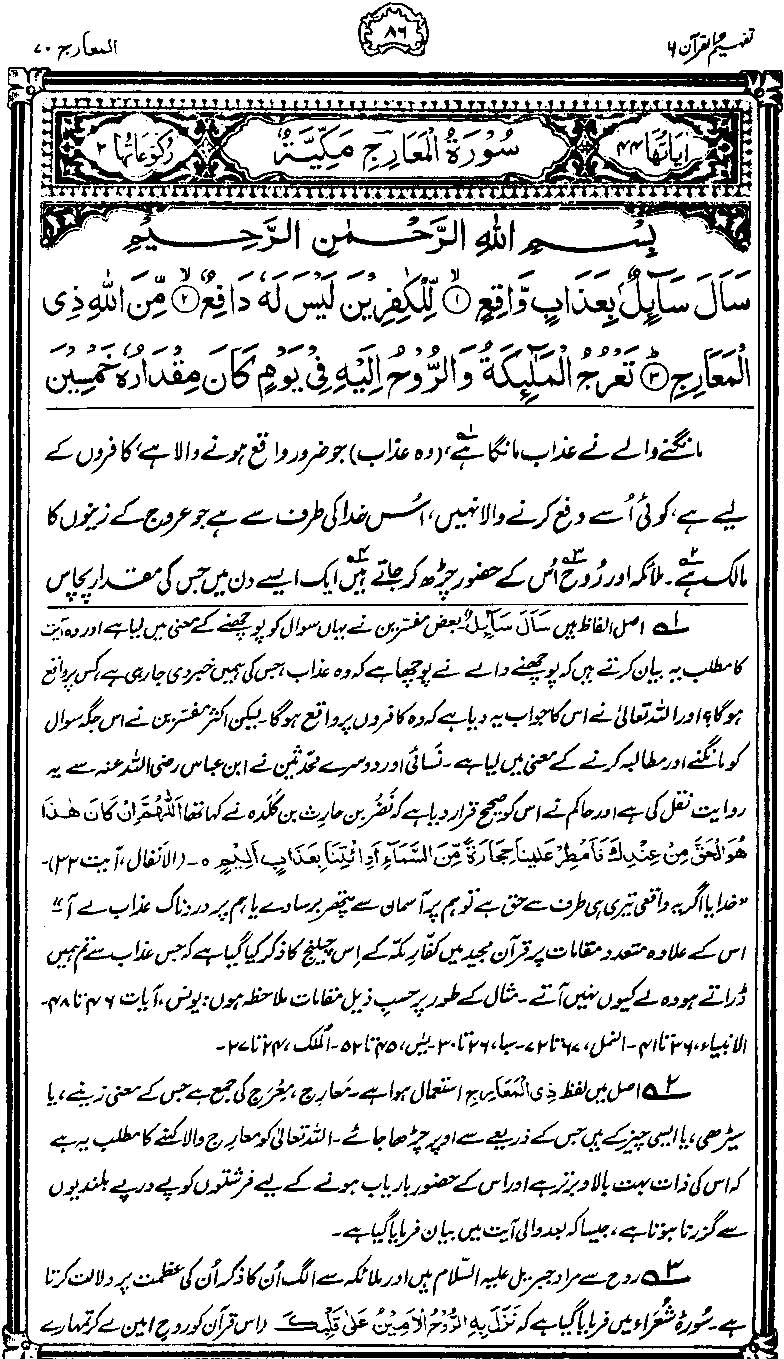 تفہیم القرآن ۶
۸۶
المعارج ۷۰
اٰیَاتُهَا ۴۴
سُوْرَةُ الْمَعَارِجِ مَكِّيَّةٌ
رُكُوْعَاتُهَا ۲
بِسْمِ اللّٰهِ الرَّحْمٰنِ الرَّحِيْمِ
سَاَلَ سَآىِٕلٌۢ بِعَذَابٍ وَّاقِعٍ ۙ‏﴿۱﴾ لِّلْكٰفِرِيْنَ لَيْسَ لَهٗ دَافِعٌ ۙ‏﴿۲﴾ مِّنَ اللّٰهِ ذِى
الْمَعَارِجِ ؕ‏﴿۳﴾ تَعْرُجُ الْمَلٰٓىِٕكَةُ وَالرُّوْحُ اِلَيْهِ فِىْ يَوْمٍ كَانَ مِقْدَارُهٗ خَمْسِيْنَ
مانگنے والے نے عذاب مانگا ہے۱؎، (وہ عذاب) جو ضرور واقع ہونے والا ہے، کافروں کے
لیے ہے، کوئی اُسے دفع کرنے والا نہیں، اُس خدا کی طرف سے ہے جو عروج کے زینوں کا
مالک ہے۲؎۔ ملائکہ اور رُوح۳؎ اُس کے حضور چڑھ کر جاتے ہیں۴؎ ایک ایسے دن میں جس کی مقدار پچاس
۱؎ اصل الفاظ ہیں سَاَلَ سَآئِلٌ۔ بعض مفسرین نے یہاں سوال کو پوچھنے کے معنی میں لیا ہے اور وہ آیت
کا مطلب یہ بیان کرتے ہیں کہ پوچھنے والے نے پوچھا ہے کہ وہ عذاب، جس کی ہمیں خبر دی جا رہی ہے، کس پر واقع
ہوگا؟ اور اللہ تعالیٰ نے اس کا جواب یہ دیا ہے کہ وہ کافروں پر واقع ہوگا۔ لیکن اکثر مفسرین نے اس جگہ سوال
کو مانگنے اور مطالبہ کرنے کے معنی میں لیا ہے۔ نسائی اور دوسرے محدثین نے ابن عباس رضی اللہ عنہ سے یہ
روایت نقل کی ہے اور حاکم نے اس کو صحیح قرار دیا ہے کہ نضر بن حارث بن کَلَدہ نے کہا تھا اَللّٰهُمَّ اِنْ كَانَ هٰذَا
هُوَ الْحَقَّ مِنْ عِنْدِكَ فَاَمْطِرْ عَلَيْنَا حِجَارَةً مِّنَ السَّمَآءِ اَوِ ائْتِنَا بِعَذَابٍ اَلِيْمٍ ہ۔ (الانفال، آیت ۳۲)۔
”خدایا اگر یہ واقعی تیری ہی طرف سے حق ہے تو ہم پر آسمان سے پتھر برسا دے یا ہم پر دردناک عذاب لے آ۔“
اس کے علاوہ متعدد مقامات پر قرآن مجید میں کفارِ مکہ کے اِس چیلنج کا ذکر کیا گیا ہے کہ جس عذاب سے تم ہمیں
ڈراتے ہو وہ لے کیوں نہیں آتے۔ مثال کے طور پر حسبِ ذیل مقامات ملاحظہ ہوں: یونس، آیات ۴۶ تا ۴۸۔
الانبیاء، ۳۶ تا ۴۱۔ النمل، ۶۷ تا ۷۲۔ سبا، ۲۶ تا ۳۰۔ یٰس، ۴۵ تا ۵۲۔ الملک، ۲۴ تا ۲۷۔
۲؎ اصل میں لفظ ذِی الْمَعَارِجِ استعمال ہوا ہے۔ مَعارِج، مِعْرَج کی جمع ہے جس کے معنی زینے، یا
سیڑھی، یا ایسی چیز کے ہیں جس کے ذریعے سے اوپر چڑھا جائے۔ اللہ تعالیٰ کو معارج والا کہنے کا مطلب یہ ہے
کہ اس کی ذات بہت بالا و برتر ہے اور اس کے حضور باریاب ہونے کے لیے فرشتوں کو پے در پے بلندیوں
سے گزرنا ہوتا ہے، جیسا کہ بعد والی آیت میں بیان فرمایا گیا ہے۔
۳؎ روح سے مراد جبریل علیہ السلام ہیں اور ملائکہ سے الگ اُن کا ذکر اُن کی عظمت پر دلالت کرتا
ہے۔ سُورۂ شُعَراء میں فرمایا گیا ہے کہ نَزَلَ بِهِ الرُّوْحُ الْاَمِيْنُ عَلٰى قَلْبِكَ (اس قرآن کو روحِ امین لے کر تمہارے